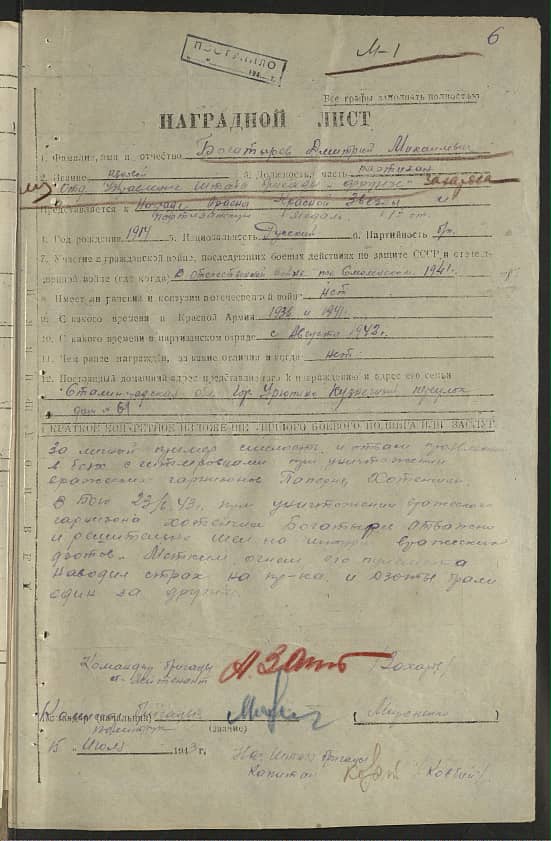 6
М-1
ПОСТУПИЛО
Все графы заполнять полностью
НАГРАДНОЙ ЛИСТ
1. Фамилия, имя и отчество Богатырев Дмитрий Михайлович
2. Звание 3. Должность, часть партизан
Отд. Управление Штаба бригады Захарова
Представляется к Красной Звезды и
Партизанскую Медаль 1й ст.
4. Год рождения 1917 5. Национальность Русский 6. Партийность б/п.
7. Участие в гражданской войне, последующих боевых действиях по защите СССР и отечест-
венной войне (где когда) В отечественной войне под Смоленском 1941г.
8. Имеет ли ранения и контузии в отечественной войне нет
9. С какого времени в Красной Армии 1936 и 1941.
10. С какого времени в партизанском отряде с Августа 1942г.
11. Чем ранее награжден, за какие отличия и когда нет.
12. Постоянный домашний адрес представляемого к награждению и адрес его семьи
Сталинградская обл. гор. Урюпино Кузнечный
дом № 61
КРАТКОЕ КОНКРЕТНОЕ ИЗЛОЖЕНИЕ ЛИЧНОГО БОЕВОГО ПОДВИГА ИЛИ ЗАСЛУГ
За личный пример смелости и отваги
в боях с гитлеровцами при уничтожении
вражеских гарнизонов
В бою 43г. при уничтожении вражеского
гарнизона Богатырев отважно
и решительно шел на штурм вражеских
дзотов. Метким огнем его пулемета
наводил страх на пр-ка и дзоты брали
один за другим.
Командир бригады
ст. лейтенант /Захаров/
Комиссар бригады
(звание)
15 " Июля 1943 г.
Нач. штаба бригады
Капитан